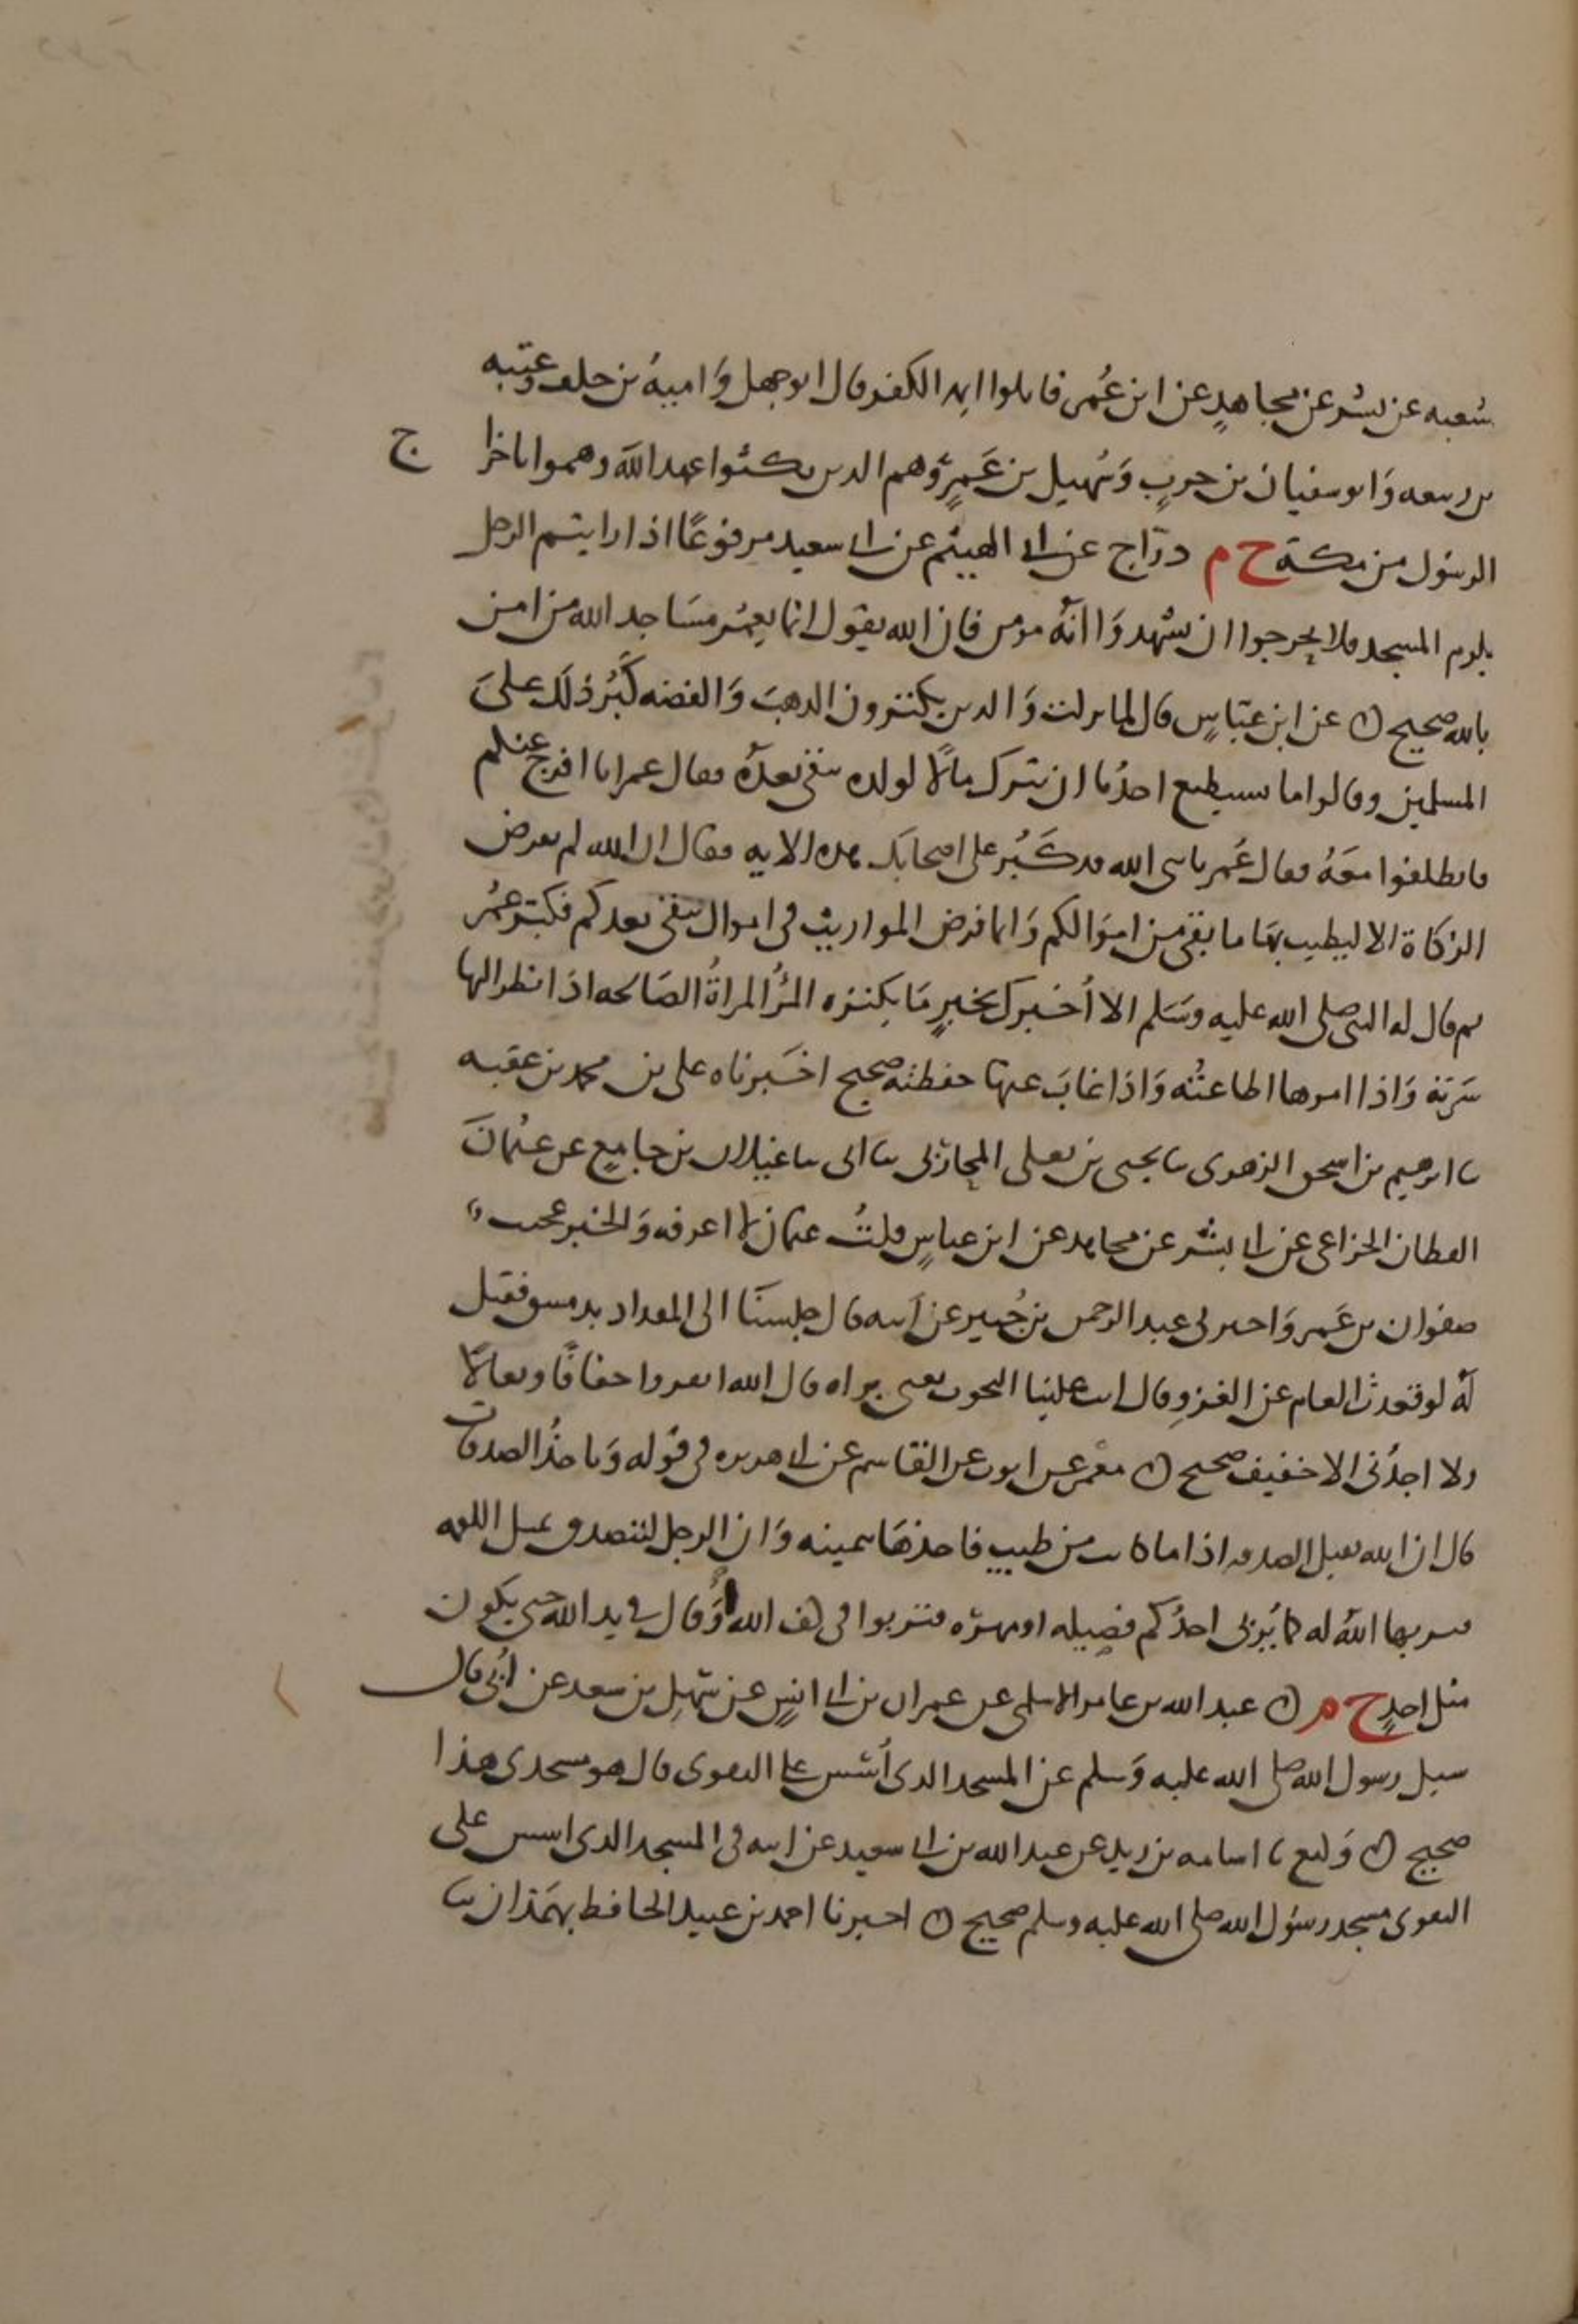 شعبه عن بشر عن مجاهدٍ عن ابن عُمر فاىلوا ايمه الكفر قال ابو جهل وَاميةُ بن خلف وعتبه
بن ربيعه وَابو سفيان بن حربٍ وَسُهيل بن عَمرٍو وَهم الذين نكثوا عهد الله وهموا باخرا ج
الرسول من مكة ح م درّاج عن ابي الهيثم عن ابي سعيد مرفوعًا اذا رايتم الرجل
يلزم المسجد فلا تحرجوا ان تشهدوَا انهُ مومن فان الله يقول انما يعمُر مسَاجد الله من امن
بالله صحيح ن عن ابن عبّاسٍ قال لما نزلت وَالذين يكنزون الذهبَ وَالفضه كَبُر ذلَك علىَ
المسلمين وقالوا ما يستطيع احدُنا ان يترك مالًا لولده يبقى بعدهُ فقال عمر انا افرج عنكم
فانطلقوا معَهُ فقال عُمر يا نبي الله قد كَبُر على اصحابكَ هذه الايه فقال ان الله لم يفرض
الزكاة الا ليطيب بهَا ما بقي من امَوالكم وَانما فرض المواريث في اموال تبقى بعدكم فكبَّر عمُر
ثم قال له النبي صلى الله عليه وسَلم الا اُخبرك بخيرٍ مَا يكنزه المرُ المراةُ الصَالحه اذَا نظر اليها
سَرته وَاذا امرها اطاعتُه وَاذَا غابَ عنها حفظته صحيح اخبَرناه على بن محمد بن عقبه
ثنا ابرهيم بن اسحق الزهري ثنا يحيى بن يعلى المحاربي ثنا ابي ثنا غيلان بن جامعٍ عن عثمانَ
القطان الخزاعي عن ابي بشر عن مجاهد عن ابن عباسٍ قلتُ عثمان لا اعرفه وَالخبر عجيب
صفوان بن عَمرو اخبرني عبد الرحمن بن جُبير عن اَبيه قال جلسنَا الى المقداد بدمشق فقيل
لهُ لو قعدتَ العام عن الغزوِ قال ابت علينا البحوث يعني براه قال الله انفروا خفافًا وثقالًا
ولا اجدُني الا خفيف صحيح ن معْمر عن ايوب عن القاسم عن ابي هريره في قوله وَياخذُ الصدقات
قال ان الله يقبل الصدقه اذا ما كانت من طيبٍ فياخذهَا بيمينه وَان الرجل ليتصدق بمثل اللقمه
فيربيها اللهُ له كما يُربى احدُكم فصِيله او مهرَه فتربوا في كف الله اَوُ قال في يد الله حتى يكون
مثل احدٍ ح م ن عبد الله بن عامر الاسلمى عن عمران بن ابي انسٍ عن سَهلِ بن سعد عن اُبيّ قال
سيل رسول الله صلى الله عليه وَسلم عن المسجد الذي اُسّس على التقوى قال هو مسجدي هذا
صحيح ن وَكيع ثنا اسامه بن زيد عن عبد الله بن ابي سعيد عن ابيه في المسجد الذي اسس على
التقوى مسجد رسُول الله صلى الله عليه وسلم صحيح ن اخبرنا احمد بن عبيد الحافظ بهمَذان ثنا